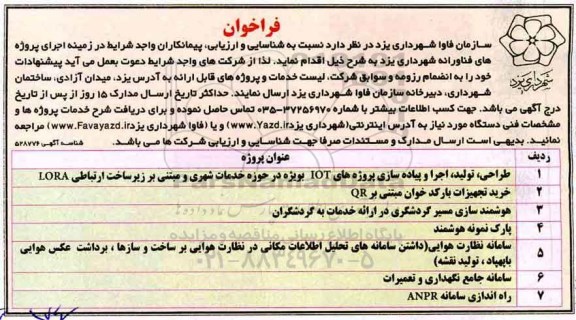 فراخوان
شهرداری یزد
سازمان فاوا شهرداری یزد در نظر دارد نسبت به شناسایی و ارزیابی، پیمانکاران واجد شرایط در زمینه اجرای پروژه
های فناورانه شهرداری یزد به شرح ذیل اقدام نماید. لذا از شرکت های واجد شرایط دعوت بعمل می آید پیشنهادات
خود را به انضمام رزومه و سوابق شرکت، لیست خدمات و پروژه های قابل ارائه به آدرس یزد، میدان آزادی، ساختمان
شهرداری، دبیرخانه سازمان فاوا شهرداری یزد ارسال نمایند. حداکثر تاریخ ارسال مدارک ۱۵ روز از پس از تاریخ
درج آگهی می باشد. جهت کسب اطلاعات بیشتر با شماره ۳۷۲۵۶۹۷۰-۰۳۵ تماس حاصل نموده و برای دریافت شرح خدمات پروژه ها و
مشخصات فنی دستگاه مورد نیاز به آدرس اینترنتی(شهرداری یزدwww.Yazd.ir) و یا (فاوا شهرداری یزدwww.Favayazd.ir) مراجعه
نمائید. بدیهی است ارسال مدارک و مستندات صرفا جهت شناسایی و ارزیابی شرکت ها می باشد.
شناسه آگهی ۵۲۸۷۷۶
ردیف عنوان پروژه
۱ طراحی، تولید، اجرا و پیاده سازی پروژه های IOT بویژه در حوزه خدمات شهری و مبتنی بر زیرساخت ارتباطی LORA
۲ خرید تجهیزات بارکد خوان مبتنی بر QR
۳ هوشمند سازی مسیر گردشگری در ارائه خدمات به گردشگران
۴ پارک نمونه هوشمند
۵ سامانه نظارت هوایی(داشتن سامانه های تحلیل اطلاعات مکانی در نظارت هوایی بر ساخت و سازها ، برداشت عکس هوایی
باپهپاد ، تولید نقشه)
۶ سامانه جامع نگهداری و تعمیرات
۷ راه اندازی سامانه ANPR
پایگاه اطلاع رسانی مناقصه و مزایده
۰۲۱-۸۸۳۴۹۶۷۰-۵